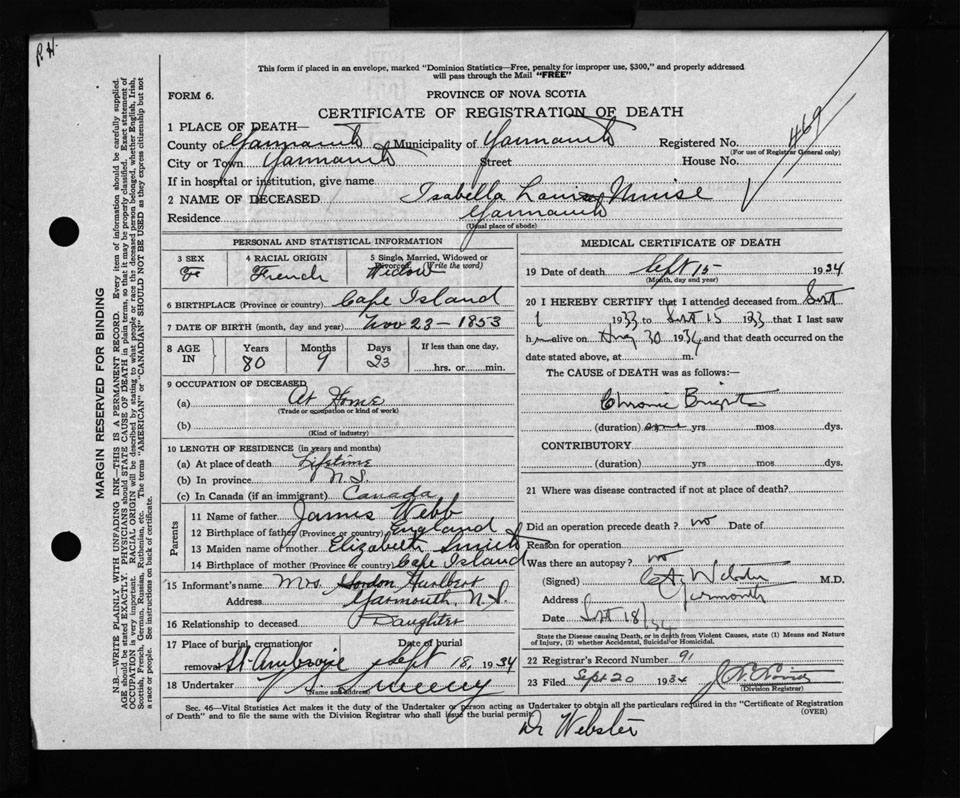 R.H.
This form if placed in an envelope, marked "Dominion Statistics—Free, penalty for improper use, $300," and properly addressed
will pass through the Mail "FREE"
FORM 6.
PROVINCE OF NOVA SCOTIA
CERTIFICATE OF REGISTRATION OF DEATH
469
1 PLACE OF DEATH—
County of Yarmouth Municipality of Yarmouth Registered No.
(For use of Registrar General only)
City or Town Yarmouth Street House No.
If in hospital or institution, give name
2 NAME OF DECEASED Isabella Muise
Residence Yarmouth
(Usual place of abode)
MARGIN RESERVED FOR BINDING
N.B.—WRITE PLAINLY WITH UNFADING INK—THIS IS A PERMANENT RECORD. Every item of information should be carefully supplied.
AGE should be stated EXACTLY. PHYSICIANS should STATE CAUSE OF DEATH in plain terms, so that it may be properly classified. Exact statement of
OCCUPATION is very important. RACIAL ORIGIN will be described by stating to what people or race the deceased person belonged, whether English, Irish,
Scottish, French, German, Russian, Ruthenian, etc. The terms "AMERICAN" or "CANADIAN" SHOULD NOT BE USED as they express citizenship but not
a race or people. See instructions on back of certificate.
PERSONAL AND STATISTICAL INFORMATION
3 SEX
F
4 RACIAL ORIGIN
French
5 Single, Married, Widowed or
Divorced (Write the word)
Widow
6 BIRTHPLACE (Province or country) Cape Island
7 DATE OF BIRTH (month, day and year) Nov 23 - 1853
8 AGE IN
Years Months Days If less than one day,
80 9 23 hrs. or min.
9 OCCUPATION OF DECEASED
(a) At Home
(Trade or occupation or kind of work)
(b)
(Kind of industry)
10 LENGTH OF RESIDENCE (in years and months)
(a) At place of death Lifetime
(b) In province N.S.
(c) In Canada (if an immigrant) Canada
Parents
11 Name of father James Webb
12 Birthplace of father (Province or country) England
13 Maiden name of mother Elizabeth Smith
14 Birthplace of mother (Province or country) Cape Island
15 Informant's name Mrs. Gordon Hurlbert
Address Yarmouth, N.S.
16 Relationship to deceased Daughter
17 Place of burial, cremation or Date of burial
removal St. Ambroise Sept 18, 1934
18 Undertaker Sweeney
(Name and address)
MEDICAL CERTIFICATE OF DEATH
19 Date of death Sept 15 1934
(Month, day and year)
20 I HEREBY CERTIFY that I attended deceased from Sept
1 1933 to Sept 15 1933 that I last saw
h alive on Aug 30 1934 and that death occurred on the
date stated above, at m.
The CAUSE of DEATH was as follows:—
Chronic Brights
(duration) yrs mos. dys.
CONTRIBUTORY
(duration) yrs. mos. dys.
21 Where was disease contracted if not at place of death?
Did an operation precede death? no Date of
Reason for operation
Was there an autopsy? no
(Signed) Webster M.D.
Address Yarmouth
Date Sept 18/34
State the Disease causing Death, or in death from Violent Causes, state (1) Means and Nature
of Injury, (2) whether Accidental, Suicidal or Homicidal.
22 Registrar's Record Number 91
23 Filed Sept 20 1934
(Division Registrar)
Sec. 46—Vital Statistics Act makes it the duty of the Undertaker or person acting as Undertaker to obtain all the particulars required in the "Certificate of Registration
of Death" and to file the same with the Division Registrar who shall issue the burial permit.
(OVER)
Dr Webster